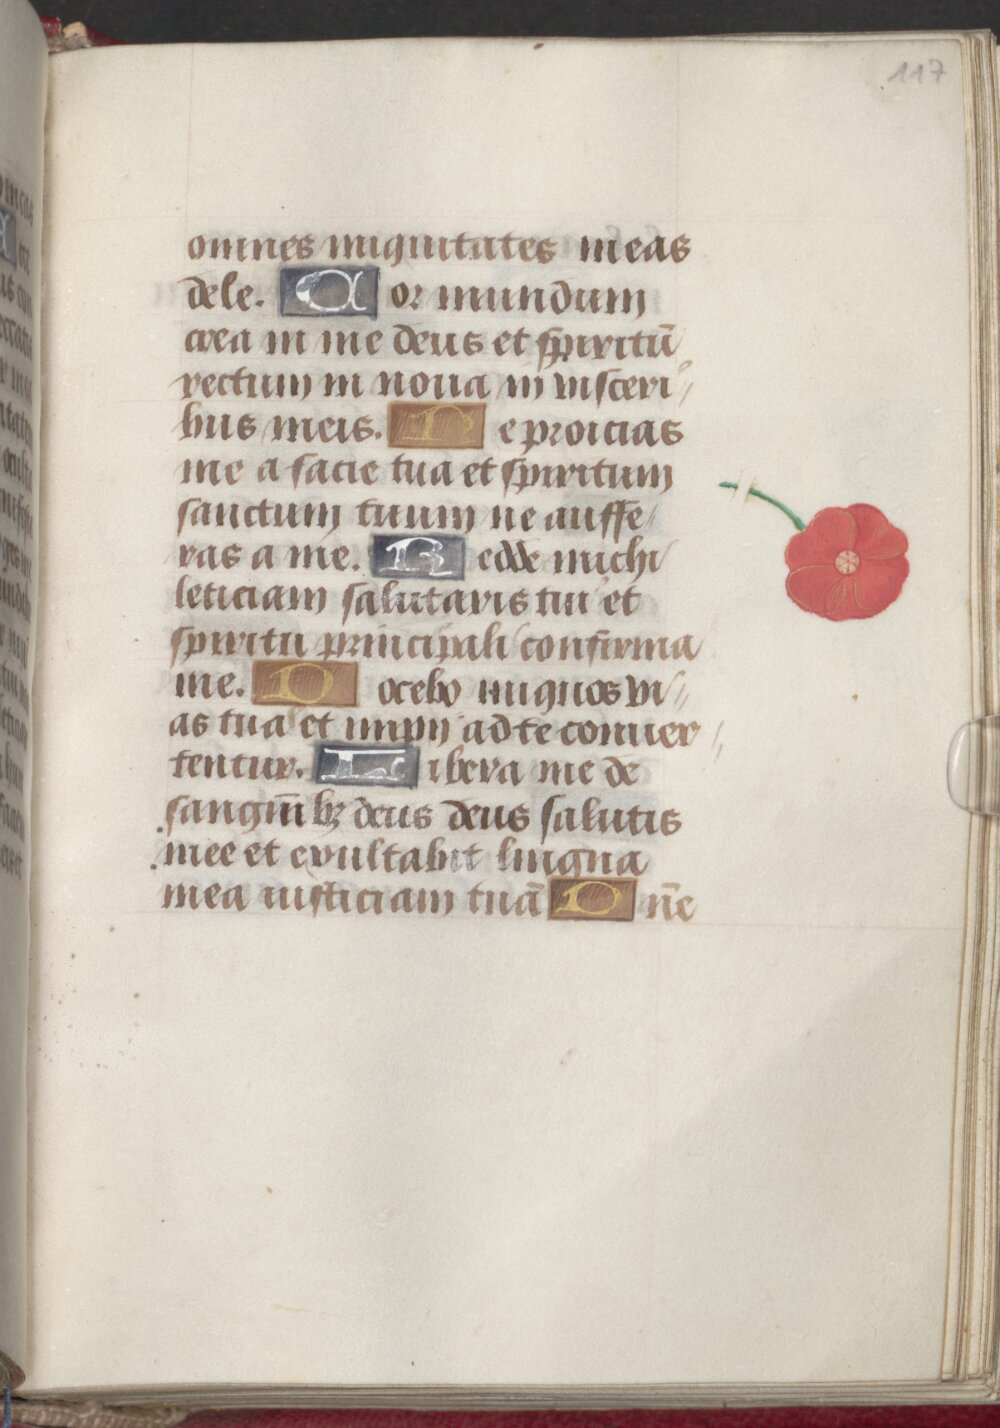 117
omnes iniquitates meas
dele. Cor mundum
crea in me deus et spiritū
rectum in noua in visceri
bus meis. Ne proicias
me a facie tua et spiritum
sanctum tuum ne auffe
ras a me. Redde michi
leticiam salutaris tui et
spiritu principali confirma
me. Docebo iniquos vi
as tua et impij ad te conuer
tentur. Libera me de
sanguībꝫ deus deus salutis
mee et exultabit lingua
mea iusticiam tuā Dn̄e